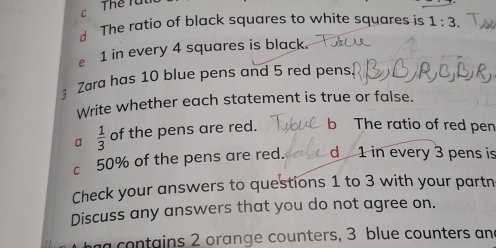 c The
d The ratio of black squares to white squares is 1 : 3.
e 1 in every 4 squares is black. True
3 Zara has 10 blue pens and 5 red pens.
Write whether each statement is true or false.
a 1/3 of the pens are red. True b The ratio of red pen
c 50% of the pens are red. false d 1 in every 3 pens is
Check your answers to questions 1 to 3 with your partn
Discuss any answers that you do not agree on.
bag contains 2 orange counters, 3 blue counters and